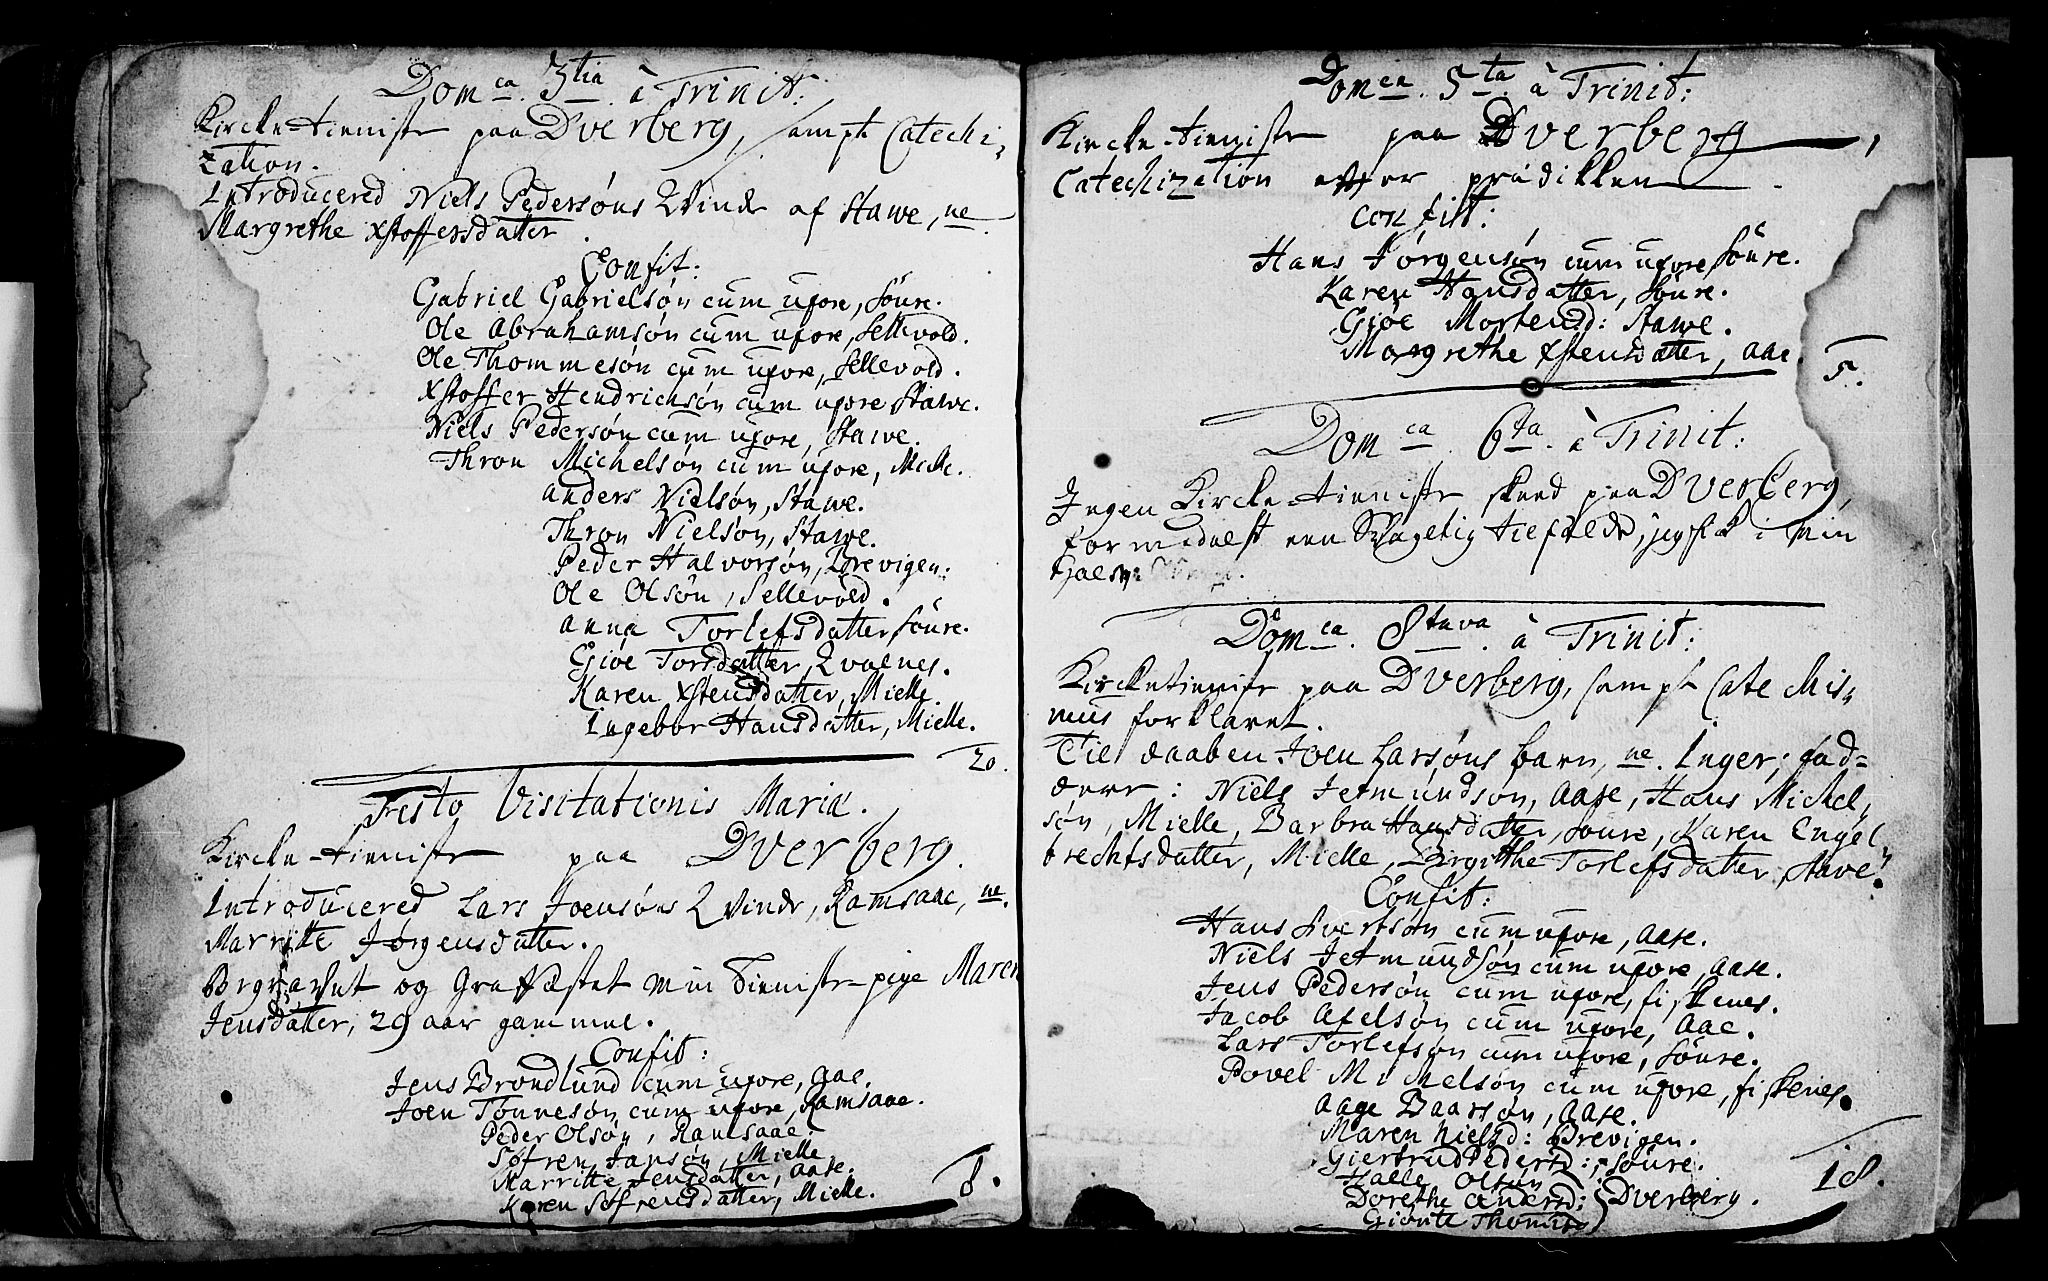 Dom<sup>ca</sup>. 3<sup>tia</sup>. à Trinit:
Kircke-tieniste paa Dverberg, sampt Catechi-
zation.
Introducered Niels Pedersøns Qvinde af Stawe, ne.
Margrethe Xstoffersdatter.
Confit:
Gabriel Gabrielsøn cum uxore, Søure.
Ole Abrahamsøn cum uxore, Sellevold.
Ole Thommesøn cum uxore, Sellevold.
Xstoffer Hendrichsøn cum uxore Stawe.
Niels Pedersøn cum uxore, Stawe.
Thron Michelsøn cum uxore, Melle.
Anders Nielsøn, Stawe.
Thron Nielsøn, Stawe.
Peder Halvorsøn, Brevigen:
Ole Olsøn, Sellevold.
Anna Torlefsdatter Søure.
Giøe Torsdatter, Qvalnes.
Karen Xstensdatter, Mielle.
Ingebor Hansdatter, Mielle.
20.
Festo Visitationis Mariæ.
Kircke-tieniste paa Dverberg.
Introducered Lars Joensøns Qvinde, Ramsaae, ne.
Marritte Jørgensdatter.
Begravet og Grafføstet min Tieniste-pige Maren
Jensdatter, 29 aar gammel.
Confit:
Jens Brondlund cum uxore, Aae.
Joen Tønnesøn cum uxore, Ramsaae.
Peder Olsøn, Ramsaae.
Søfren Jansøn, Mielle
Marritte Jensdatter, Aase.
Karen Søfrensdatter, Mielle.
8.
Dom<sup>ca</sup>. 5<sup>ta</sup>. à Trinit:
Kircke-tieniste paa Dverberg,
Catechization efter prædikken.
Confit:
Hans Jørgensøn cum uxore Søure.
Karen Hansdatter, Søure.
Giøe Mortensd: Stawe.
Margrethe Xstensdatter, Aae.
5.
Dom<sup>ca</sup>. 6<sup>ta</sup>. à Trinit:
Ingen Kircke-tieniste skeed paa Dverberg,
formedelst een tiefælde, jeg fik i min
Dom<sup>ca</sup>. 8<sup>tava</sup>. à Trinit:
Kircketieniste paa Dverberg, sampt Catechis-
mus forklaret.
Til daaben Joen Larsøns barn, ne. Inger; fad-
dere: Niels Jetmundsøn, Aase, Hans Michel-
søn, Mielle, Barbra Hansdatter, Søure, Karen Engel-
brechtsdatter, Mielle, Birgitthe Torlefsdatter, Stave.
Confit:
Hans Evertsøn cum uxore, Aase.
Niels Jetmundsøn cum uxore, Aase.
Jens Pedersøn cum uxore, fiskenes.
Jacob Axelsøn cum uxore, Aae.
Lars Torlefsøn cum uxore, Søure.
Povel Michelsøn cum uxore, fiskenes.
Aage Baarsøn, Aase.
Maren Nielsd: Brevigen.
Giertrud Pedersd:, Søure.
Halle Olsøn
Dorethe Andersd: } Dverberg.
Giøritte
18.